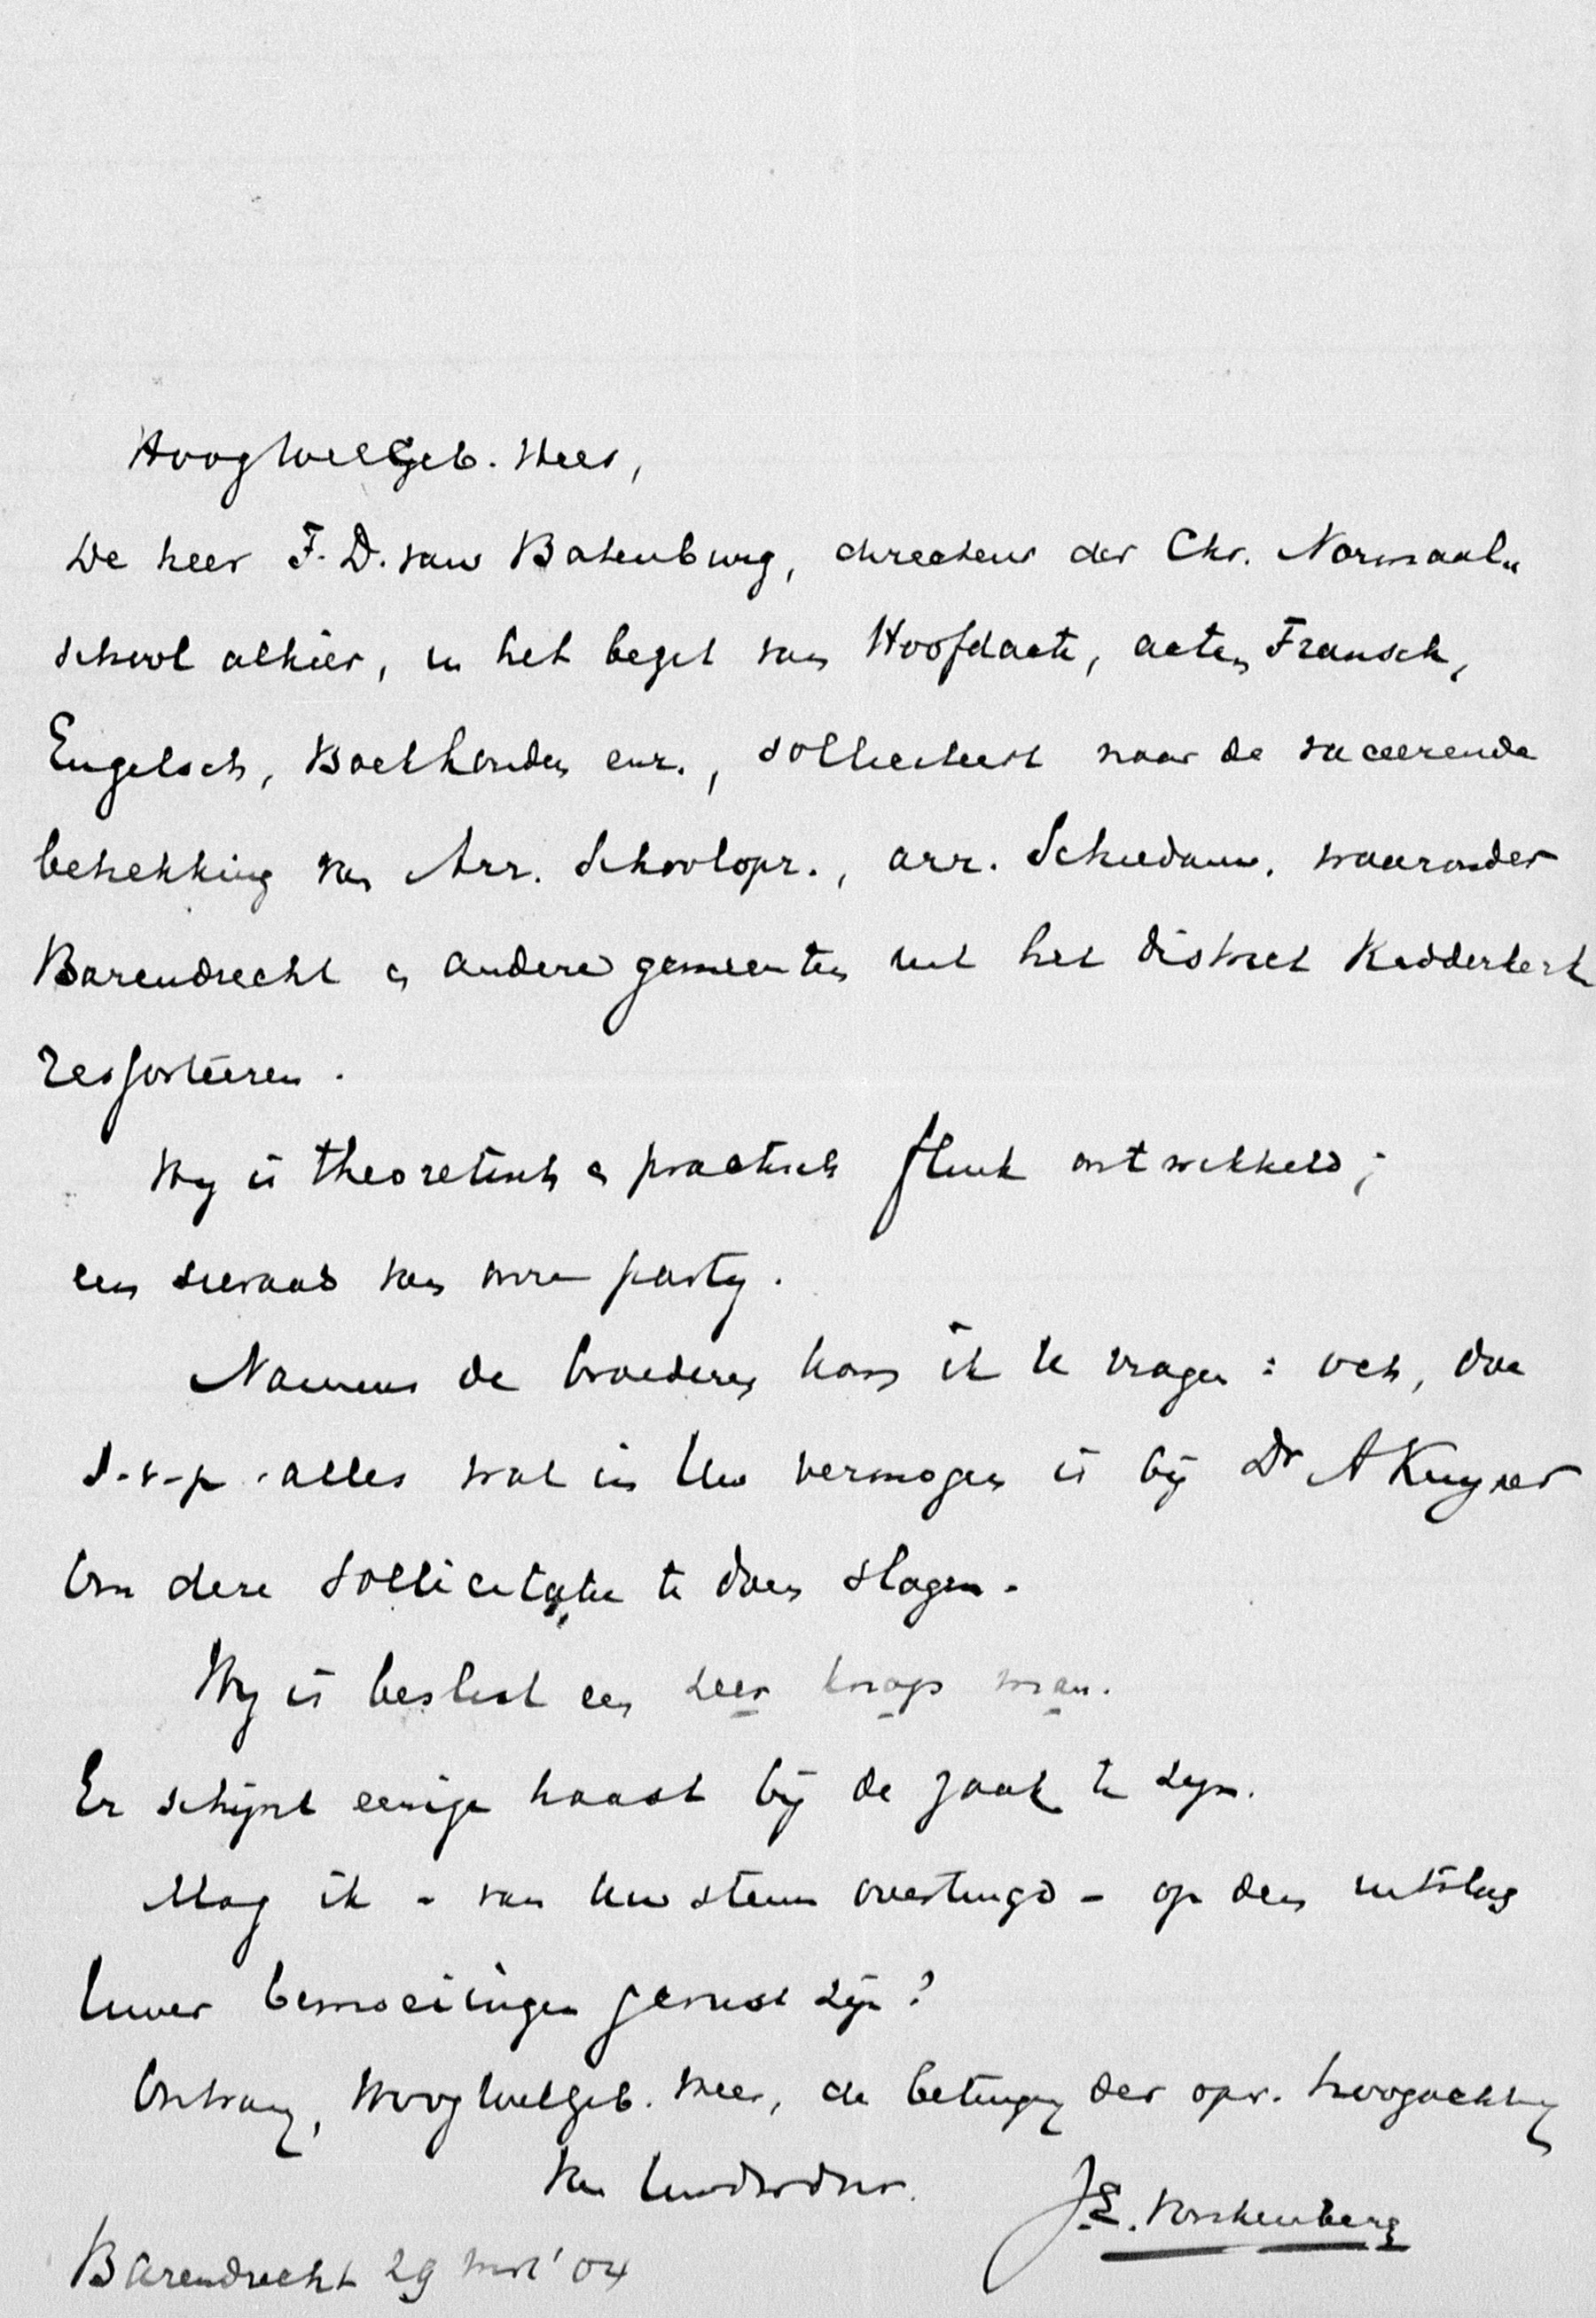 HoogWelGeb. Heer,
De heer F. D. van Batenburg, directeur der Chr. Normaal„
school alhier, in het bezit van Hoofdacte, acten Fransch,
Engelsch, Boekhouden enz., solliciteert naar de vaceerende
betrekking van Arr. Schoolopz., arr. Schiedam, waaronder
Barendrecht en andere gemeenten uit het district Ridderkerk
ressorteeren.
Hij is theoretisch en practisch flink ontwikkeld;
een sieraad van onze partij.
Namens de broederen kom ik U vragen: och, doe
s.v.p. alles wat in Uw vermogen is bij Dr A Kuyper
om deze sollicitatie te doen slagen.
Hij is beslist een zeer knap man.
Er schijnt eenige haast bij de zaak te zijn.
Mag ik - van Uw steun overtuigd - op den uitslag
Uwer bemoeiingen gerust zijn?
Ontvang, HoogWelGeb. Heer, de betuiging der opr. hoogachting
van Uwdwdnr.
J.E. Vonkenberg
Barendrecht 29 '04